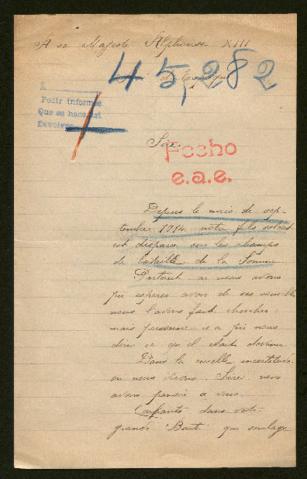 A sa Majesté Alphonse XIII
45,282
A
Pedir informes
Que se hace así
Devolver
Sire,
Fecho
e.a.e.
Depuis le mois de sep-
tembre 1914 notre fils soldat
est disparu sur les champs
de bataille de la Somme
Partout où nous avons
pu espérer avoir de ses nouvelles
nous l'avons fait chercher,
mais personne n'a pu nous
dire ce qu'il était devenu
Dans la cruelle incertitude
où nous vivons, Sire, nous
avons pensé à vous.
Confiants dans votre
grande Bonté, qui soulage